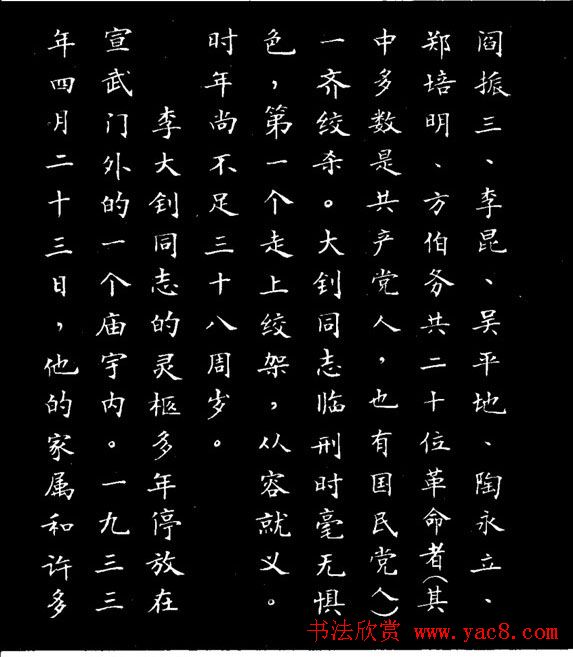 阎振三、李昆、吴平地、陶永立、
郑培明、方伯务共二十位革命者(其
中多数是共产党人，也有国民党人)
一齐绞杀。大钊同志临刑时毫无惧
色，第一个走上绞架，从容就义。
时年尚不足三十八周岁。
李大钊同志的灵柩多年停放在
宣武门外的一个庙宇内。一九三三
年四月二十三日，他的家属和许多
书法欣赏 www.yac8.com